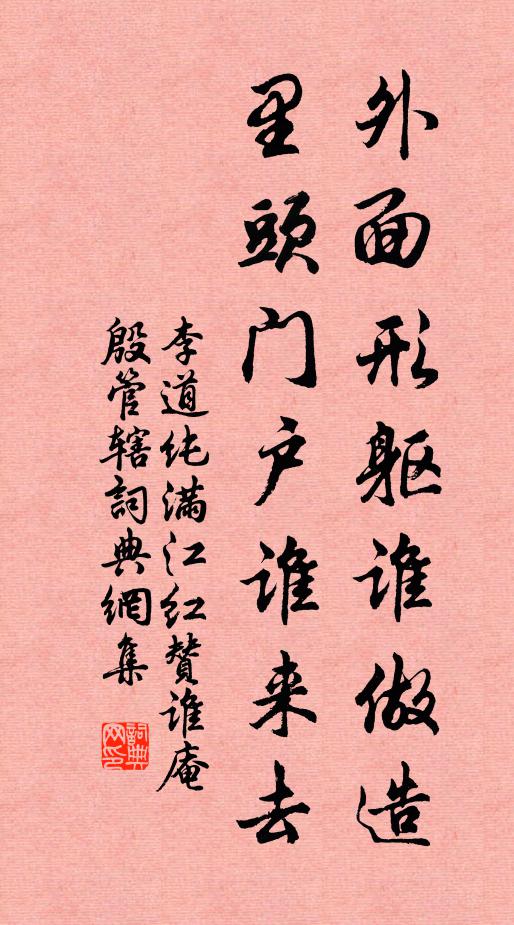 外面形躯谁做造
里頭门户谁来去
李道纯满江红赞谁庵
殷管辖詞典網集
詞典网印